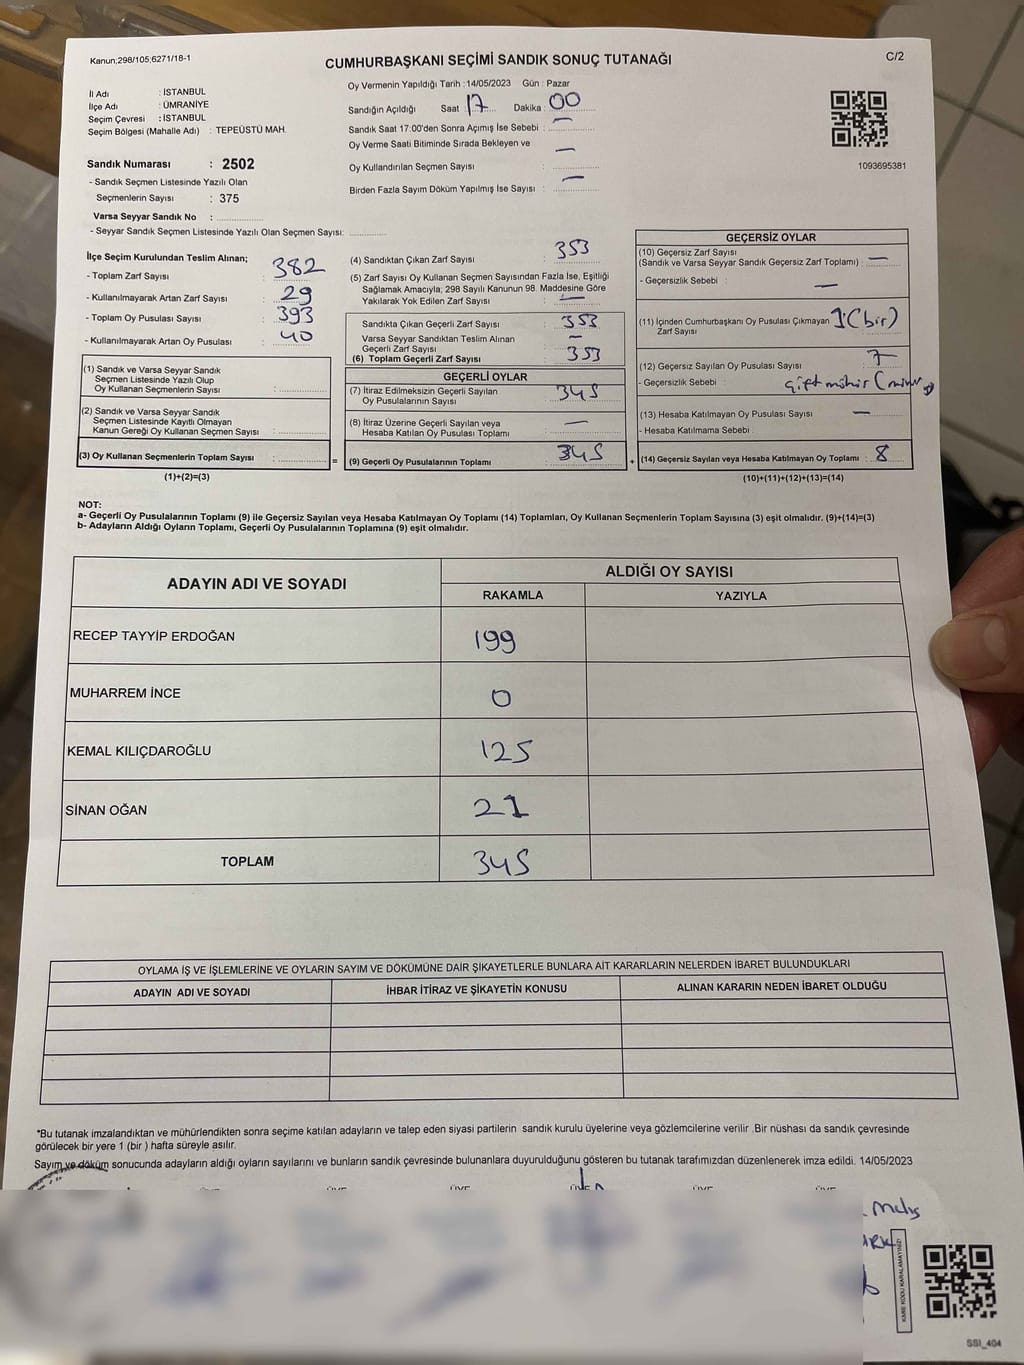 Kanun;298/105;6271/18-1
CUMHURBAŞKANI SEÇİMİ SANDIK SONUÇ TUTANAĞI
C/2
İl Adı : İSTANBUL
İlçe Adı : ÜMRANİYE
Seçim Çevresi : İSTANBUL
Seçim Bölgesi (Mahalle Adı) : TEPEÜSTÜ MAH.
Sandık Numarası : 2502
- Sandık Seçmen Listesinde Yazılı Olan
Seçmenlerin Sayısı : 375
Varsa Seyyar Sandık No :
- Seyyar Sandık Seçmen Listesinde Yazılı Olan Seçmen Sayısı:
Oy Vermenin Yapıldığı Tarih :14/05/2023 Gün : Pazar
Sandığın Açıldığı Saat 17 Dakika : 00
Sandık Saat 17:00'den Sonra Açımış İse Sebebi : —
Oy Verme Saati Bitiminde Sırada Bekleyen ve
Oy Kullandırılan Seçmen Sayısı : —
Birden Fazla Sayım Döküm Yapılmış İse Sayısı : —
1093695381
İlçe Seçim Kurulundan Teslim Alınan;
- Toplam Zarf Sayısı : 382
- Kullanılmayarak Artan Zarf Sayısı : 29
- Toplam Oy Pusulası Sayısı : 393
- Kullanılmayarak Artan Oy Pusulası : 40
(1) Sandık ve Varsa Seyyar Sandık
Seçmen Listesinde Yazılı Olup
Oy Kullanan Seçmenlerin Sayısı :
(2) Sandık ve Varsa Seyyar Sandık
Seçmen Listesinde Kayıtlı Olmayan
Kanun Gereği Oy Kullanan Seçmen Sayısı :
(3) Oy Kullanan Seçmenlerin Toplam Sayısı :
(1)+(2)=(3)
(4) Sandıktan Çıkan Zarf Sayısı : 353
(5) Zarf Sayısı Oy Kullanan Seçmen Sayısından Fazla İse, Eşitliği
Sağlamak Amacıyla; 298 Sayılı Kanunun 98. Maddesine Göre
Yakılarak Yok Edilen Zarf Sayısı : —
Sandıkta Çıkan Geçerli Zarf Sayısı : 353
Varsa Seyyar Sandıktan Teslim Alınan
Geçerli Zarf Sayısı : —
(6) Toplam Geçerli Zarf Sayısı : 353
GEÇERLİ OYLAR
(7) İtiraz Edilmeksizin Geçerli Sayılan
Oy Pusulalarının Sayısı : 345
(8) İtiraz Üzerine Geçerli Sayılan veya
Hesaba Katılan Oy Pusulası Toplamı : —
=
(9) Geçerli Oy Pusulalarının Toplamı : 345
+
GEÇERSİZ OYLAR
(10) Geçersiz Zarf Sayısı
(Sandık ve Varsa Seyyar Sandık Geçersiz Zarf Toplamı) : —
- Geçersizlik Sebebi : —
(11) İçinden Cumhurbaşkanı Oy Pusulası Çıkmayan : 1 (bir)
Zarf Sayısı
(12) Geçersiz Sayılan Oy Pusulası Sayısı : 7
- Geçersizlik Sebebi : çift mühür
(13) Hesaba Katılmayan Oy Pusulası Sayısı : —
- Hesaba Katılmama Sebebi :
(14) Geçersiz Sayılan veya Hesaba Katılmayan Oy Toplamı : 8
(10)+(11)+(12)+(13)=(14)
NOT:
a- Geçerli Oy Pusulalarının Toplamı (9) ile Geçersiz Sayılan veya Hesaba Katılmayan Oy Toplamı (14) Toplamları, Oy Kullanan Seçmenlerin Toplam Sayısına (3) eşit olmalıdır. (9)+(14)=(3)
b- Adayların Aldığı Oyların Toplamı, Geçerli Oy Pusulalarının Toplamına (9) eşit olmalıdır.
ADAYIN ADI VE SOYADI
ALDIĞI OY SAYISI
RAKAMLA YAZIYLA
RECEP TAYYİP ERDOĞAN 199
MUHARREM İNCE 0
KEMAL KILIÇDAROĞLU 125
SİNAN OĞAN 21
TOPLAM 345
OYLAMA İŞ VE İŞLEMLERİNE VE OYLARIN SAYIM VE DÖKÜMÜNE DAİR ŞİKAYETLERLE BUNLARA AİT KARARLARIN NELERDEN İBARET BULUNDUKLARI
ADAYIN ADI VE SOYADI İHBAR İTİRAZ VE ŞİKAYETİN KONUSU ALINAN KARARIN NEDEN İBARET OLDUĞU
*Bu tutanak imzalandıktan ve mühürlendikten sonra seçime katılan adayların ve talep eden siyasi partilerin sandık kurulu üyelerine veya gözlemcilerine verilir .Bir nüshası da sandık çevresinde
görülecek bir yere 1 (bir ) hafta süreyle asılır.
Sayım ve döküm sonucunda adayların aldığı oyların sayılarını ve bunların sandık çevresinde bulunanlara duyurulduğunu gösteren bu tutanak tarafımızdan düzenlenerek imza edildi. 14/05/2023
ÜYE ÜYE ÜYE ÜYE ÜYE ÜYE
Melis
KARE KODU KARALAMAYINIZ!
SSI_404